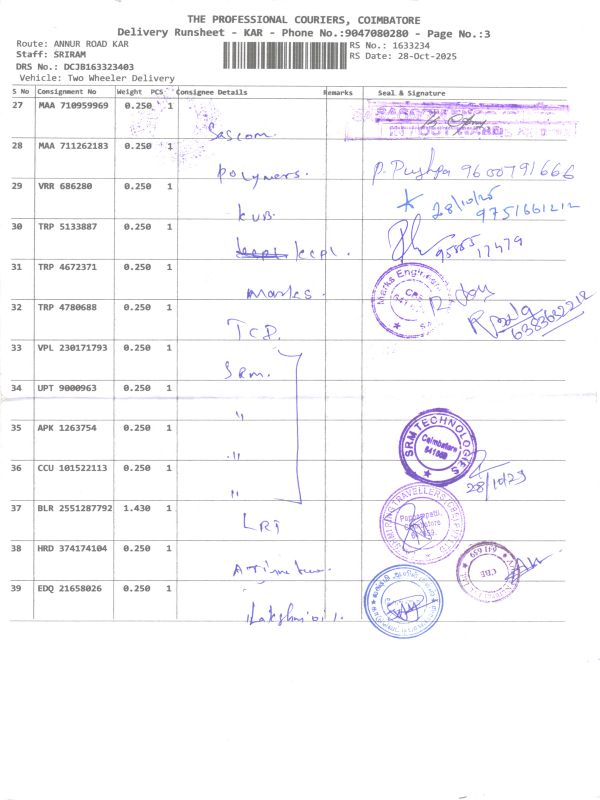 THE PROFESSIONAL COURIERS, COIMBATORE
Delivery Runsheet - KAR - Phone No.:9047080280 - Page No.:3
Route: ANNUR ROAD KAR
RS No.: 1633234
Staff: SRIRAM
RS Date: 28-Oct-2025
DRS No.: DCJB163323403
Vehicle: Two Wheeler Delivery
S No Consignment No Weight PCS Consignee Details Remarks Seal & Signature
27 MAA 710959969 0.250 1 Sascom
28 MAA 711262183 0.250 1 Polymers. P. Pushpa 9600791666
29 VRR 686280 0.250 1 KVB 28/10/25 9751661212
30 TRP 5133887 0.250 1 kcpl.
31 TRP 4672371 0.250 1 Marks. Marks Engine
32 TRP 4780688 0.250 1 TCP. 6383682218
33 VPL 230171793 0.250 1 Srm.
34 UPT 9000963 0.250 1 "
35 APK 1263754 0.250 1 " SRM TECHNOLOGIES Coimbatore
36 CCU 101522113 0.250 1 " 28/10/25
37 BLR 2551287792 1.430 1 LRT
38 HRD 374174104 0.250 1
39 EDQ 21658026 0.250 1 Lakshmi oil.